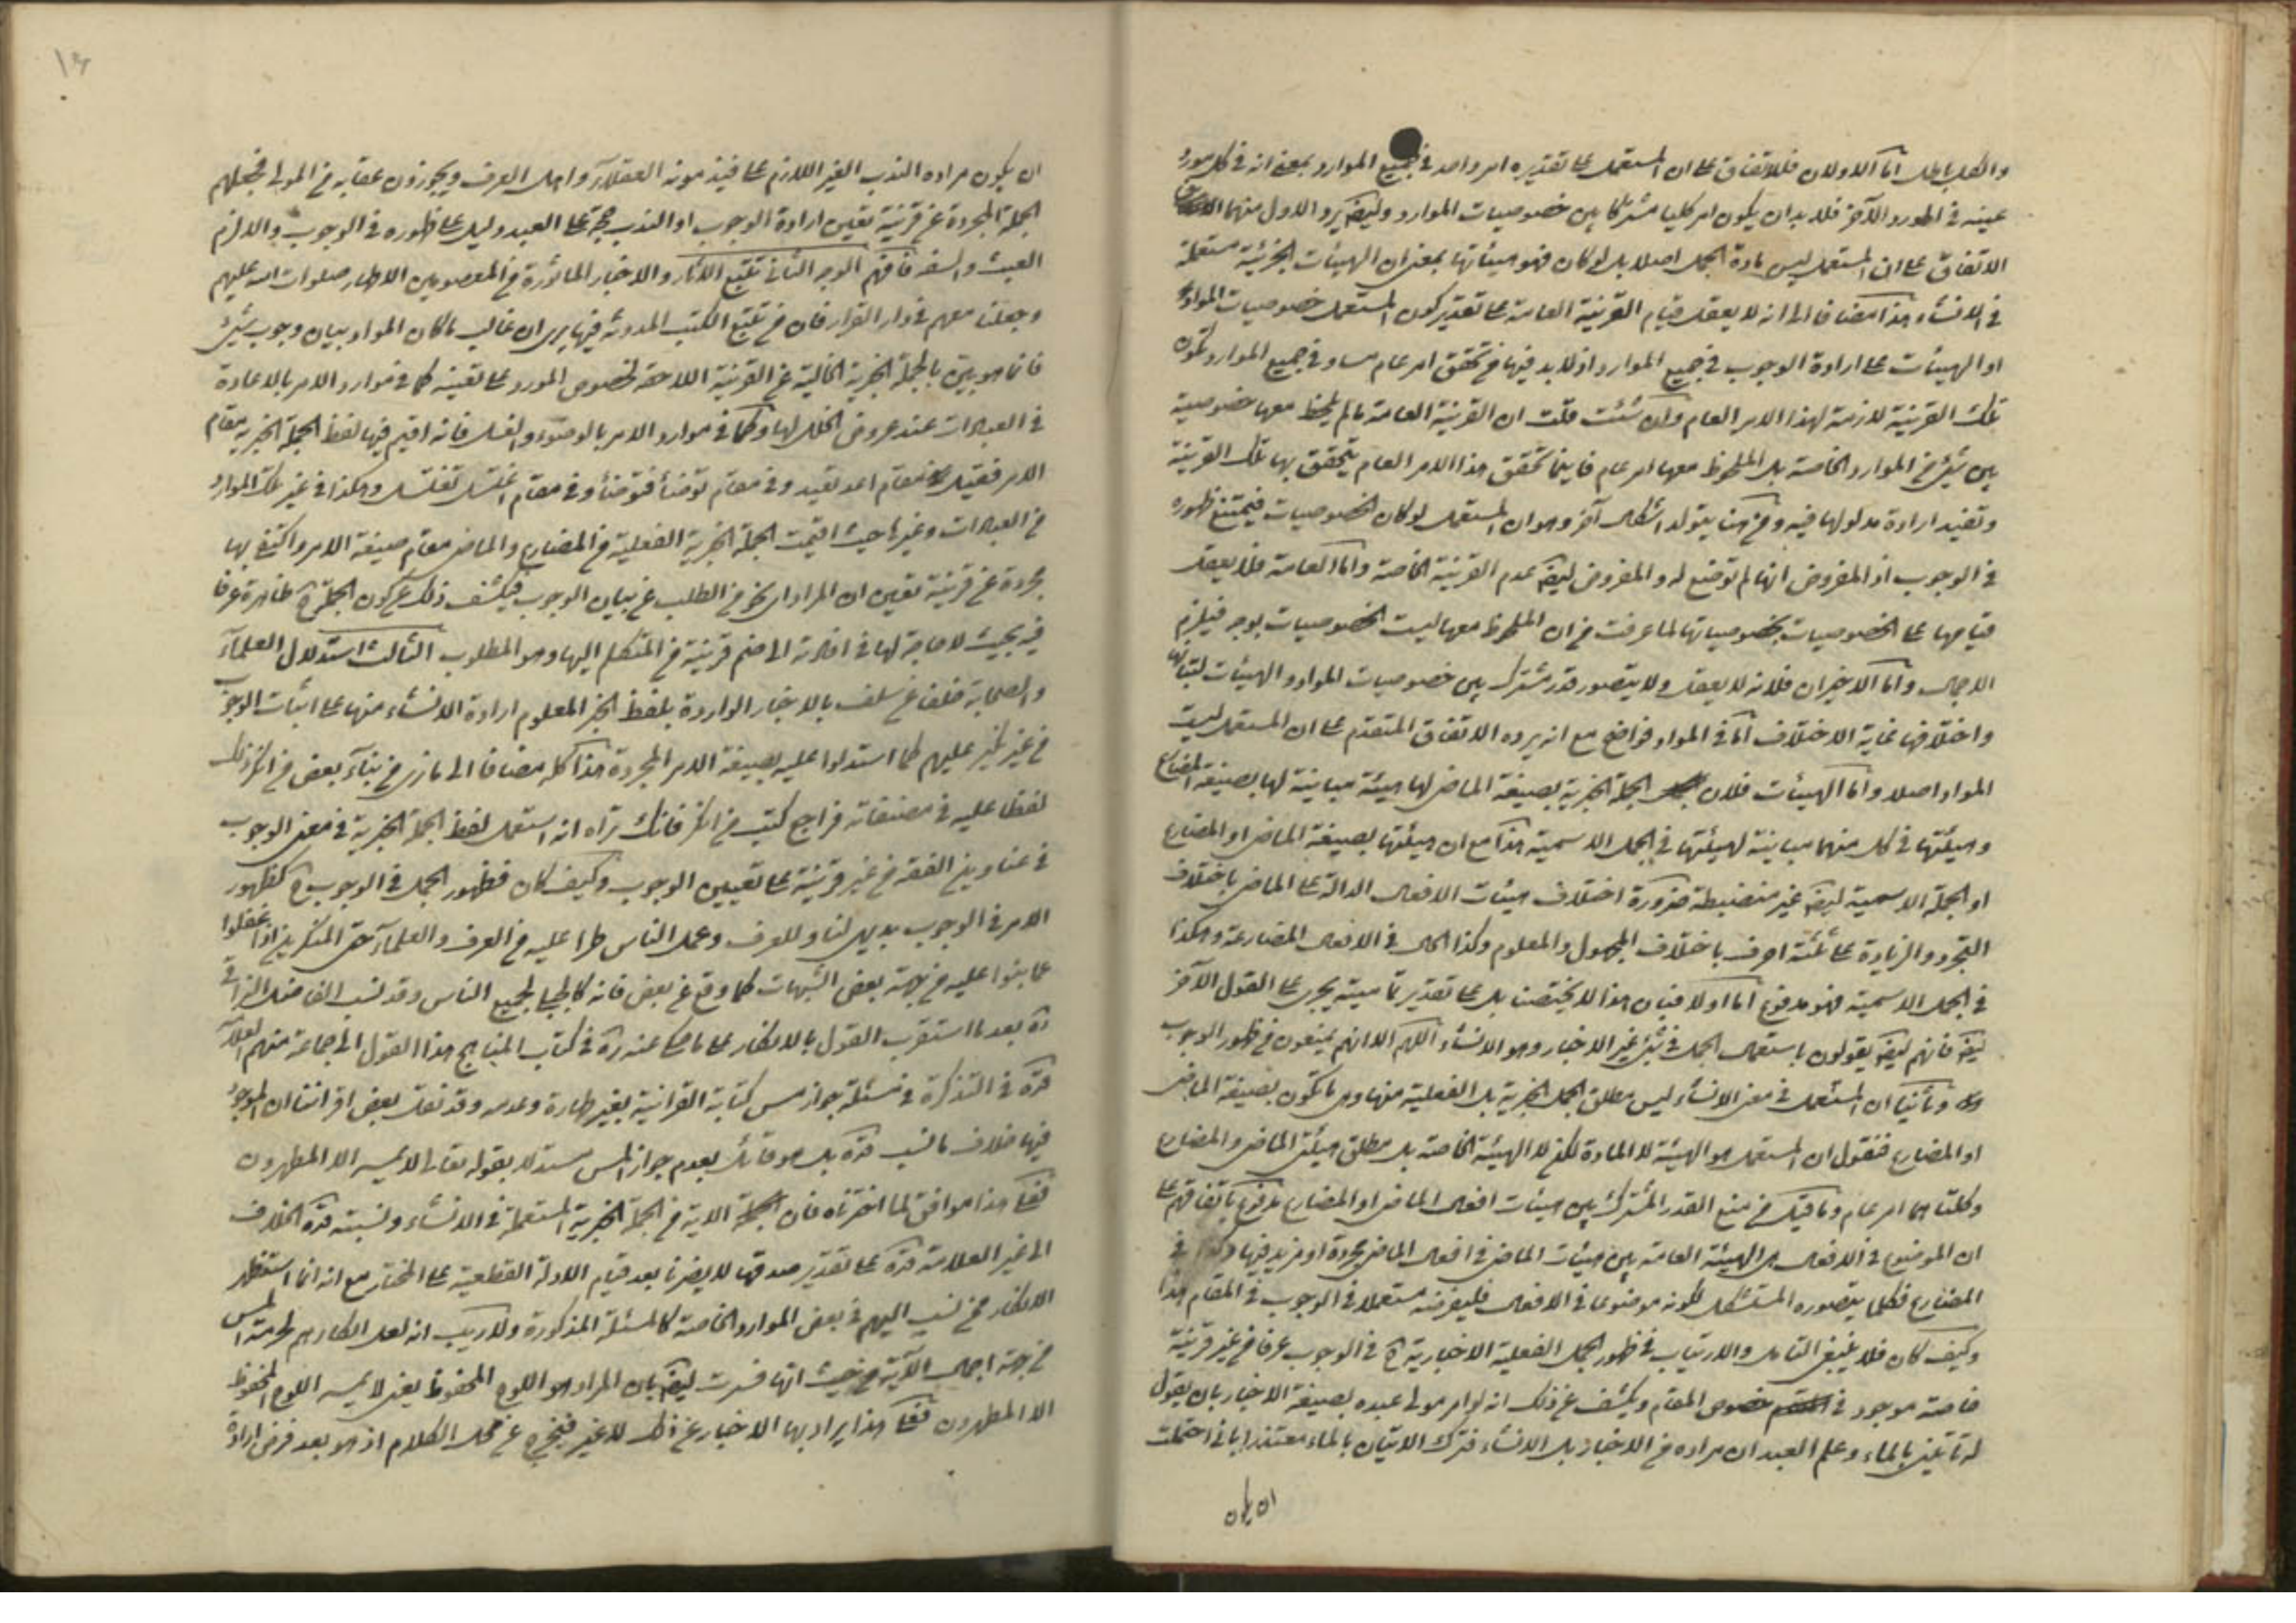 والكل باطل اما الاولان فللاتفاق على ان المستعمل على تقديره امر واحد في جميع الموارد بمعنى انه في كل مورد
عينه في المورد الآخر فلا بد ان يكون امر كليا مشتركا بين خصوصيات الموارد وليضم يرد الاول منهما
الاتفاق على ان المستعمل ليس مادة الجمل اصلا بل لو كان فهو هيئاتها بمعنى ان الهيئات الخبرية مستعملة
في الانشاء هذا مضافا الى انه لا يعقل قيام القرينة العامة على تقدير كون المستعمل خصوصيات المواد
او الهيئات على ارادة الوجوب في جميع الموارد اذ لا بد فيها من تحقق امر عام مساو في جميع الموارد تكون
تلك القرينة لازمة لهذا الامر العام وان شئت قلت ان القرينة العامة ما لم يلحظ معها خصوصية
بين شيئ من الموارد الخاصة بل الملحوظ معها امر عام فاينما تحقق هذا الامر العام يتحقق بها تلك القرينة
وتفيد ارادة مدلولها فيه ومن هنا يتولد اشكال آخر وهو ان المستعمل لو كان الخصوصيات فيمتنع ظهوره
في الوجوب اذ المفروض انها لم توضع له والمفروض ايضا عدم القرينة الخاصة واما العامة فلا يعقل
قيامها على الخصوصيات بخصوصياتها لما عرفت من ان الملحوظ معها ليست الخصوصيات بوجه فيلزم
الاجمال واما الاخيران فلانه لا يعقل ولا يتصور قدر مشترك بين خصوصيات المواد والهيئات لتباينها
واختلافها غاية الاختلاف اما في المواد فواضح مع انه يرده الاتفاق المتقدم على ان المستعمل ليست
المواد اصلا واما الهيئات فلان الجملة الخبرية بصيغة الماضي لها هيئة مباينة لها بصيغة المضارع
وهيئتها في كل منهما مباينة لهيئتها في الجمل الاسمية هذا مع ان هيئتها بصيغة الماضي او المضارع
او الجملة الاسمية ايضا غير منضبطة ضرورة اختلاف هيئات الافعال الدالة على الماضي باختلاف
التجرد والزيادة على ثلثة احرف باختلاف المجهول والمعلوم وكذا الحال في الافعال المضارعة وهكذا
في الجمل الاسمية فهو مدفوع اما اولا فبان هذا لا يختصنا بل على تقدير تماميته يجري على القول الآخر
ايضا فانهم ايضا يقولون باستعمال الجمل في شيئ غير الاخبار وهو الانشاء اللهم الا انهم يمنعون من ظهور الوجوب
وثانيا ان المستعمل في معنى الانشاء ليس مطلق الجمل الخبرية بل الفعلية منها وهي ما تكون بصيغة الماضي
او المضارع فنقول ان المستعمل هو الهيئة لا المادة لكن لا الهيئة الخاصة بل مطلق هيئتي الماضي والمضارع
وكلتاهما امر عام وما قيل من منع القدر المشترك بين هيئات افعال الماضي او المضارع مدفوع باتفاقهم على
ان الموضوع في الافعال هي الهيئة العامة بين هيئات الماضي في افعال الماضي مجردة او مزيد فيها وكذا في
المضارع فكلما يتصوره المستشكل لكونه موضوعا في الافعال فليفرضه مستعملا في الوجوب في المقام هذا
وكيف كان فلا ينبغي التأمل والارتياب في ظهور الجمل الفعلية الاخبارية في الوجوب عرفا من غير قرينة
خاصة موجود في خصوص المقام ويكشف عن ذلك انه لو امر مولى عبده بصيغة الاخبار بان يقول
له تأتيني بالماء وعلم العبد ان مراده من الاخبار بل الانشاء فترك الاتيان بالماء معتذرا باني احتملت
ان يكون
ان يكون مراده الندب الغير اللازم على فيذمونه العقلاء واهل العرف ويجوزون عقابه من المولى فجعلهم
الجملة المجردة عن قرينة تعيين ارادة الوجوب او الندب حجة على العبد دليل على ظهوره في الوجوب والا لزم
العبث والسفه فافهم الوجه الثاني تتبع الآثار والاخبار الماثورة من المعصومين الاطهار صلوات الله عليهم
وجعلنا معهم في دار القرار فان من تتبع الكتب المدونة فيها يرى ان غالب ما كان المراد بيان وجوب شيئ
فانما هو بين بالجملة الخبرية الخالية عن القرينة اللاحقة لخصوص المورد على تعيينه كما في موارد الامر بالاعادة
في العبادات عند عروض الخلل لها وكما في موارد الامر بالوضوء والغسل فانه اقيم فيها لفظ الجملة الخبرية مقام
الامر فقيل في مقام اعد تعيد وفي مقام توضأ فتوضأ وفي مقام اغتسل تغتسل وهكذا في غير تلك الموارد
من العبادات وغيرها حيث اقيمت الجملة الخبرية الفعلية من المضارع والماضي مقام صيغة الامر واكتفي بها
مجردة عن قرينة تعيين ان المراد اي نحو من الطلب عن بيان الوجوب فيكشف ذلك عن كون الجملة ظاهرة عرفا
فيه بحيث لا حاجة لها في افادته الى ضم قرينة من المتكلم اليها وهو المطلوب الثالث استدلال العلماء
والصحابة خلفا عن سلف بالاخبار الواردة بلفظ الخبر المعلوم ارادة الانشاء منها على اثبات الوجوب
من غير نكير عليهم كما استدلوا عليه بصيغة الامر المجردة هذا كله مضافا الى ما نرى من بناء بعض من انكر ذلك
لفظا عليه في مصنفاته فراجع كتب من انكر فانك تراه انه استعمل لفظ الجملة الخبرية في معنى الوجوب
في عناوين الفقه من غير قرينة على تعيين الوجوب وكيف كان فظهور الجمل في الوجوب كظهور
الامر في الوجوب بديهي لنا وللعرف وعمل الناس طرا عليه من العرف والعلماء حتى المنكرين اذا غفلوا
عما بنوا عليه من جهة بعض الشبهات كما وقع عن بعض فانه كالجبلي لجميع الناس وقد نسب الفاضل النراقي
ره بعد ما استقرب القول بالانكار على ما حكى عنه ره في كتاب المناهج هذا القول الى جماعة منهم العلامة
قدّه في التذكرة في مسئلة جواز مس كتابة القرآنية بغير طهارة وعدمه وقد نقل بعض اقراننا ان الموجود
فيها خلاف ما نسب قدّه بل هو قائل بعدم جواز المس مستدلا بقوله تعالى لا يمسه الا المطهرون
فعلى هذا موافق لما اخترناه فان الآية من الجملة الخبرية المستعملة في الانشاء ونسبته قدّه الخلاف
الى غير العلامة قدّه على تقدير صدقها لا يضرنا بعد قيام الادلة القطعية على المختار مع انه انما استظهر
الانكار ممن نسب اليهم في بعض الموارد الخاصة كالمسئلة المذكورة ولا ريب انه لعل انكارهم لحرمة المس
من جهة اجمال الآية من حيث انها فسرت ايضا بان المراد هو اللوح المحفوظ يعني لا يمس اللوح المحفوظ
الا المطهرون فعلى هذا يراد بها الاخبار عن ذلك لا غير فيخرج عن محل الكلام اذ هو بعد فرض ارادة